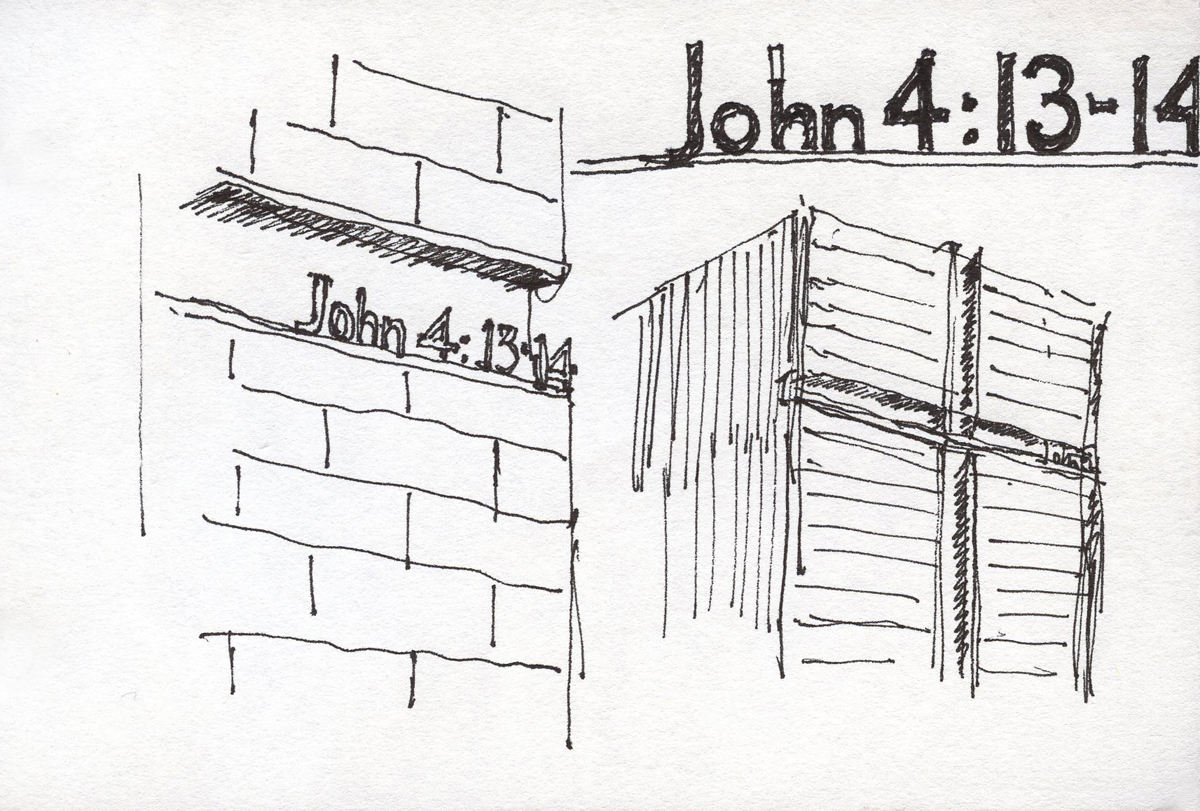 John 4:13-14
John 4:13-14
John